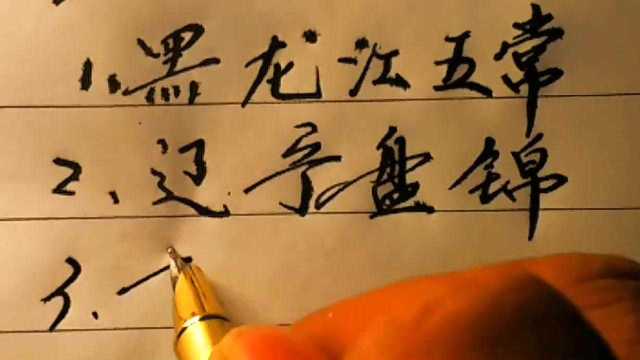 1.黑龙江五常
2、辽宁盘锦
3.